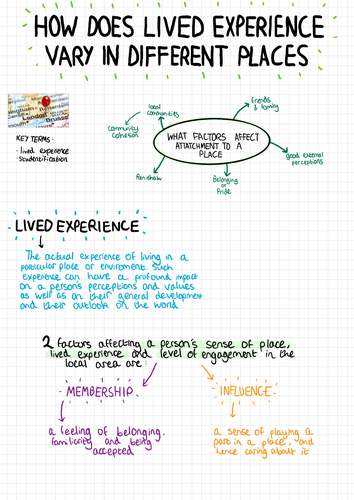 HOW DOES LIVED EXPERIENCE
VARY IN DIFFERENT PLACES
KEY TERMS:
· lived experience
· studentification
local
comunities
friends
& family
Community
Cohesion
WHAT FACTORS AFFECT
ATTATCHMENT TO A
PLACE
good external
perceptions
Belonging
or
Pride
LIVED EXPERIENCE
The actual experience of living in a
particular place or enviroment. Such
experience can have a profound impact
on a person's perceptions and values
as well as on their general development
and their outlook on the world
2 factors affecting a person's sense of place,
lived experience and level of engagement in the
local area are:
MEMBERSHIP
INFLUENCE
a feeling of belonging,
familiarity and being
accepted
a sense of playing a
part in a place, and
hence caring about it